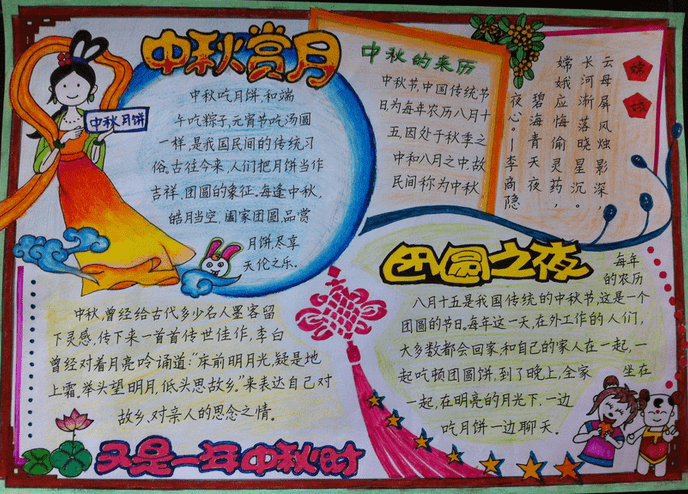 中秋赏月
中秋月饼
中秋吃月饼,和端
午吃粽子,元宵节吃汤圆
一样,是我国民间的传统习
俗。古往今来,人们把月饼当作
吉祥、团圆的象征,每逢中秋,
皓月当空,阖家团圆,品尝
月饼尽享
天伦之乐。
中秋的来历
中秋节,中国传统节
日为每年农历八月十
五因处于秋季之
中和八月之中,故
民间称为中秋
嫦娥
云母屏风烛影深,
长河渐落晓星沉。
嫦娥应悔偷灵药,
碧海青天夜
夜心。一李商隐
团圆之夜
每年
的农历
八月十五是我国传统的中秋节,这是一个
团圆的节日,每年这一天,在外工作的人们,
大多数都会回家,和自己的家人在一起,一
起吃顿团圆饼,到了晚上,全家坐在
一起,在明亮的月光下,一边
吃月饼一边聊天。
中秋,曾经给古代多少名人墨客留
下灵感,传下来一首首传世佳作,李白
曾经对着月亮吟诵道:“床前明月光,疑是地
上霜,举头望明月,低头思故乡。”来表达自己对
故乡、对亲人的思念之情。
又是一年中秋时